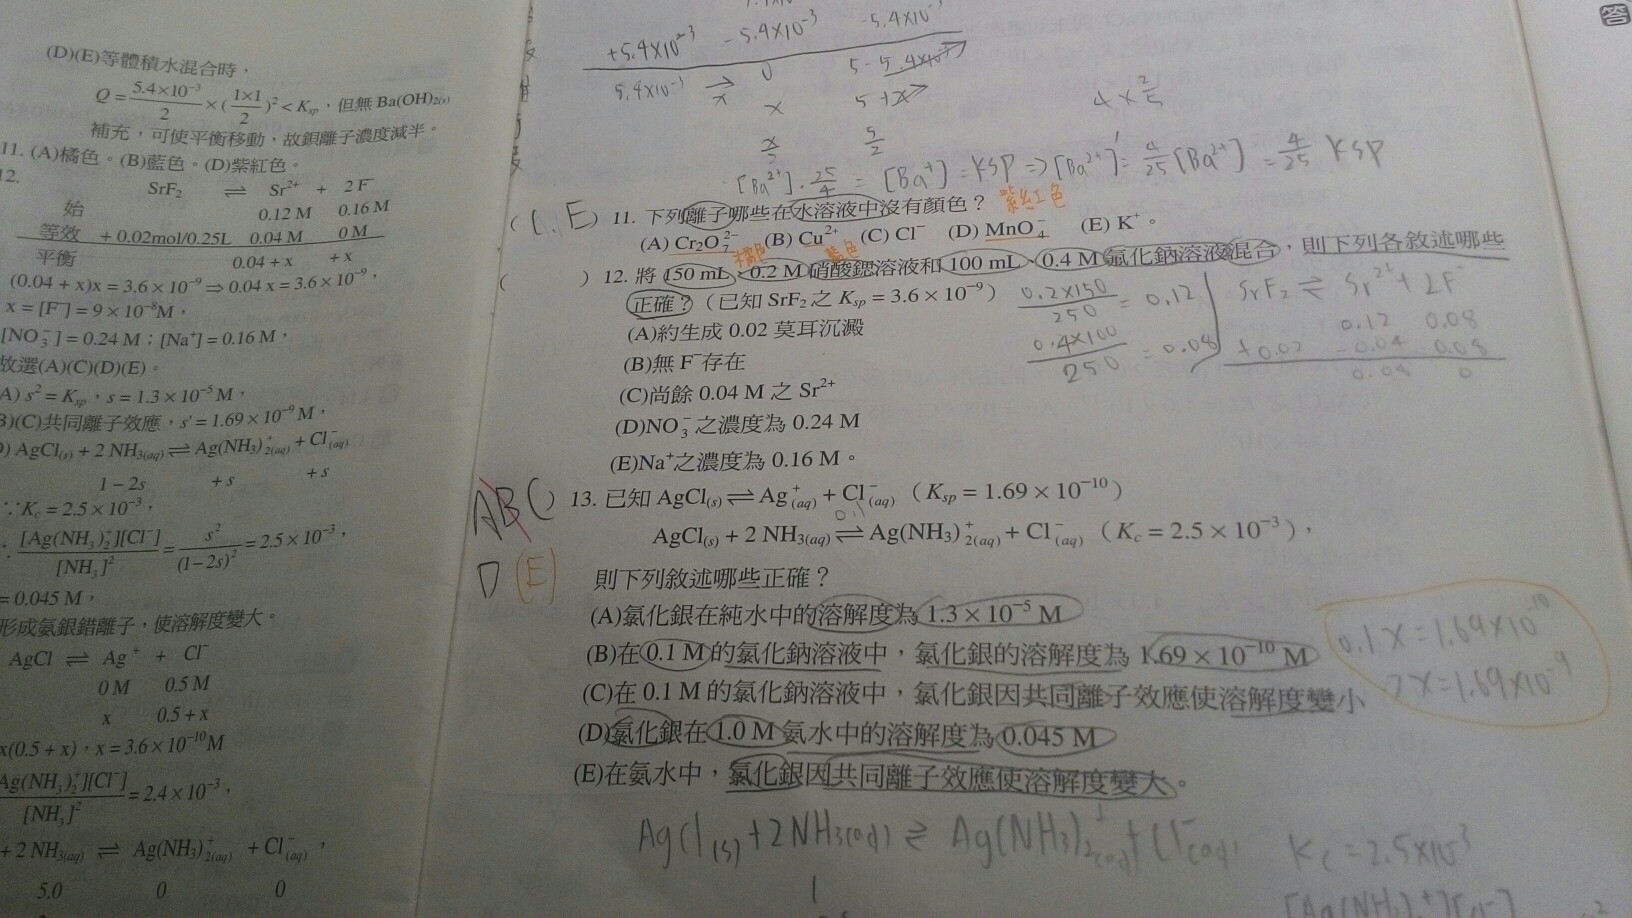 (D)(E)等體積水混合時，
Q = 5.4×10⁻³/2 × (1×1/2)² < Ksp，但無 Ba(OH)₂₍s₎
補充，可使平衡移動，故鋇離子濃度減半。
11. (A)橘色。(B)藍色。(D)紫紅色。
12.
SrF₂ ⇌ Sr²⁺ + 2 F⁻
始 0.12 M 0.16 M
等效 + 0.02mol/0.25L 0.04 M 0 M
平衡 0.04 + x + x
(0.04 + x)x = 3.6 × 10⁻⁹ ⇒ 0.04 x = 3.6 × 10⁻⁹，
x = [F⁻] = 9 × 10⁻⁸M，
[NO₃⁻] = 0.24 M；[Na⁺] = 0.16 M，
故選(A)(C)(D)(E)。
A) s² = Ksp，s = 1.3 × 10⁻⁵ M，
B)(C)共同離子效應，s' = 1.69 × 10⁻⁹ M，
) AgCl₍s₎ + 2 NH₃₍aq₎ ⇌ Ag(NH₃)₂⁺₍aq₎ + Cl⁻₍aq₎
1 − 2s + s + s
∵Kc = 2.5 × 10⁻³，
[Ag(NH₃)₂⁺][Cl⁻]/[NH₃]² = s²/(1 − 2s)² = 2.5 × 10⁻³，
= 0.045 M，
形成氨銀錯離子，使溶解度變大。
AgCl ⇌ Ag⁺ + Cl⁻
0 M 0.5 M
x 0.5 + x
x(0.5 + x)，x = 3.6 × 10⁻¹⁰ M
Ag(NH₃)₂⁺][Cl⁻]/[NH₃]² = 2.4 × 10⁻³，
+ 2 NH₃₍aq₎ ⇌ Ag(NH₃)₂⁺₍aq₎ + Cl⁻₍aq₎，
5.0 0 0
答
+5.4×10⁻³ −5.4×10⁻³ −5.4×10⁻
5.4×10⁻³ → x 0 5−5.4×10⁻³
x 5+x
x/2 5/2
4 × 2/5
[Ba²⁺]·25/4 = [Ba⁺] = Ksp ⇒ [Ba²⁺]' = 4/25 [Ba²⁺] = 4/25 Ksp
( C、E ) 11. 下列離子哪些在水溶液中沒有顏色？ 紫紅色
(A) Cr₂O₇²⁻ (B) Cu²⁺ (C) Cl⁻ (D) MnO₄⁻ (E) K⁺。
橘色 藍色
( ) 12. 將 150 mL、0.2 M 硝酸鍶溶液和 100 mL、0.4 M 氟化鈉溶液混合，則下列各敘述哪些
正確？（已知 SrF₂ 之 Ksp = 3.6 × 10⁻⁹）
(A)約生成 0.02 莫耳沉澱
(B)無 F⁻存在
(C)尚餘 0.04 M 之 Sr²⁺
(D)NO₃⁻之濃度為 0.24 M
(E)Na⁺之濃度為 0.16 M。
0.2×150/250 = 0.12
0.4×100/250 = 0.08
SrF₂ ⇌ Sr²⁺ + 2F⁻
0.12 0.08
+0.02 −0.04 −0.08
0.08 0
ABC ) 13. 已知 AgCl₍s₎ ⇌ Ag⁺₍aq₎ + Cl⁻₍aq₎（Ksp = 1.69 × 10⁻¹⁰）
0.1
AgCl₍s₎ + 2 NH₃₍aq₎ ⇌ Ag(NH₃)₂⁺₍aq₎ + Cl⁻₍aq₎（Kc = 2.5 × 10⁻³），
D (E) 則下列敘述哪些正確？
(A)氯化銀在純水中的溶解度為 1.3 × 10⁻⁵ M
(B)在 0.1 M 的氯化鈉溶液中，氯化銀的溶解度為 1.69 × 10⁻¹⁰ M
(C)在 0.1 M 的氯化鈉溶液中，氯化銀因共同離子效應使溶解度變小
(D)氯化銀在 1.0 M 氨水中的溶解度為 0.045 M
(E)在氨水中，氯化銀因共同離子效應使溶解度變大。
0.1 x = 1.69×10⁻¹⁰
⇒ x = 1.69×10⁻⁹
AgCl₍s₎ + 2NH₃₍aq₎ ⇌ Ag(NH₃)₂⁺₍aq₎ + Cl⁻₍aq₎
Kc = 2.5×10⁻³
1